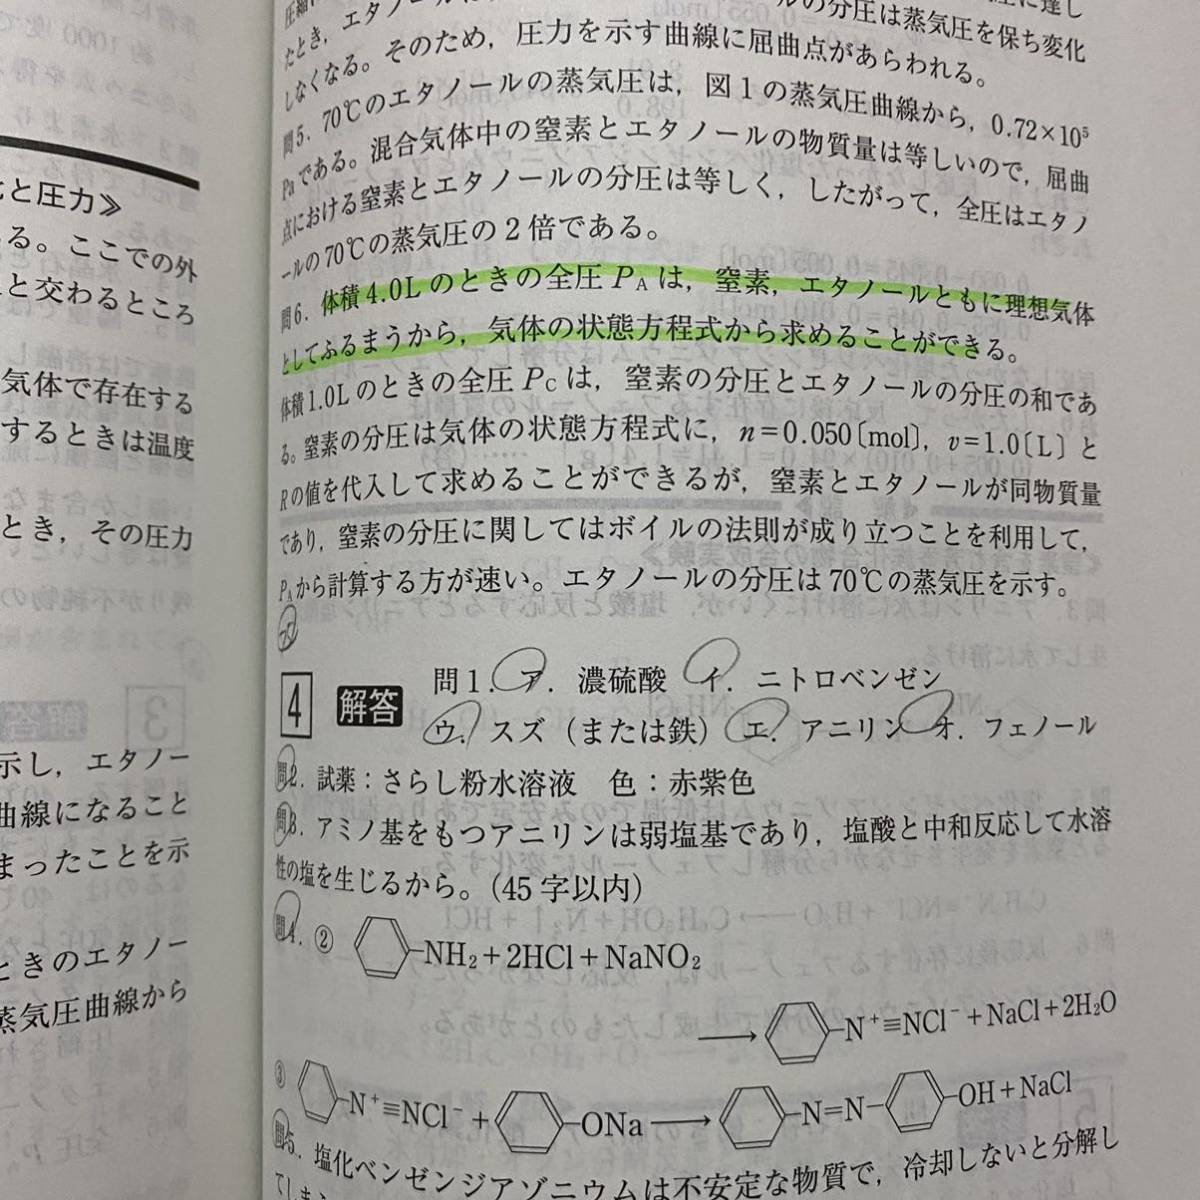 たとき,エタノール
の分圧は蒸気圧を保ち変化
しなくなる。そのため,圧力を示す曲線に屈曲点があらわれる。
問5. 70℃のエタノールの蒸気圧は,図1の蒸気圧曲線から,0.72×10⁵
Paである。混合気体中の窒素とエタノールの物質量は等しいので,屈曲
点における窒素とエタノールの分圧は等しく,したがって,全圧はエタノ
ールの70℃の蒸気圧の2倍である。
問6. 体積4.0Lのときの全圧PAは,窒素,エタノールともに理想気体
としてふるまうから,気体の状態方程式から求めることができる。
体積1.0Lのときの全圧PCは,窒素の分圧とエタノールの分圧の和であ
る。窒素の分圧は気体の状態方程式に,n=0.050〔mol〕,v=1.0〔L〕と
Rの値を代入して求めることができるが,窒素とエタノールが同物質量
であり,窒素の分圧に関してはボイルの法則が成り立つことを利用して,
PAから計算する方が速い。エタノールの分圧は70℃の蒸気圧を示す。
4 解答 問1. ア. 濃硫酸 イ. ニトロベンゼン
ウ. スズ(または鉄) エ. アニリン オ. フェノール
問2. 試薬:さらし粉水溶液 色:赤紫色
問3. アミノ基をもつアニリンは弱塩基であり,塩酸と中和反応して水溶
性の塩を生じるから。(45字以内)
問4. ② -NH₂+2HCl+NaNO₂
⟶ -N⁺≡NCl⁻+NaCl+2H₂O
③ -N⁺≡NCl⁻+ -ONa⟶ -N=N- -OH+NaCl
問5. 塩化ベンゼンジアゾニウムは不安定な物質で,冷却しないと分解し
と圧力≫
る。ここでの外
と交わるところ
気体で存在する
するときは温度
とき,その圧力
示し,エタノー
曲線になること
まったことを示
ときのエタノー
蒸気圧曲線から